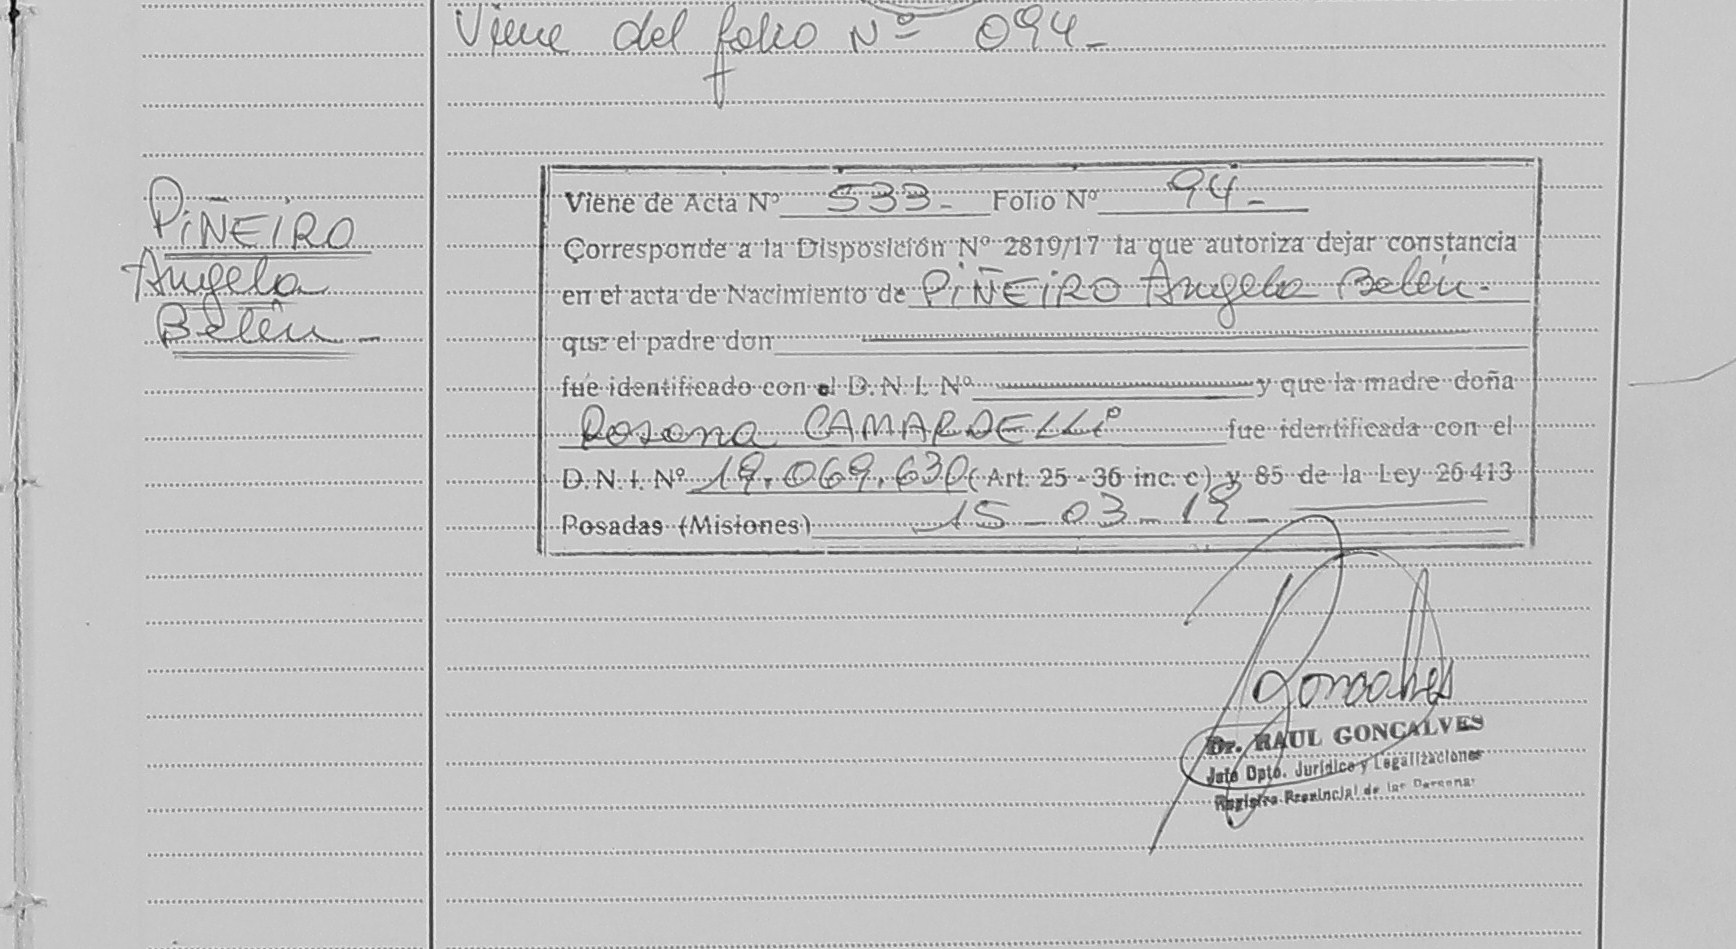 Viene del folio Nº 094-
PIÑEIRO
Angela
Belén -
Viene de Acta Nº 533- Folio Nº 94-
Corresponde a la Disposición Nº 2819/17 la que autoriza dejar constancia
en el acta de Nacimiento de PIÑEIRO Angela Belén-
que el padre don
fue identificado con el D.N.I. Nº y que la madre doña
Rosana CAMARDELLI fue identificada con el
D.N.I. Nº 18.069.630 (Art. 25-36 inc. c) y 85 de la Ley 26413
Posadas (Misiones) 15-03-18-
Goncalves
Dr. RAUL GONCALVES
Jefe Dpto. Jurídico y Legalizaciones
Registro Provincial de las Personas